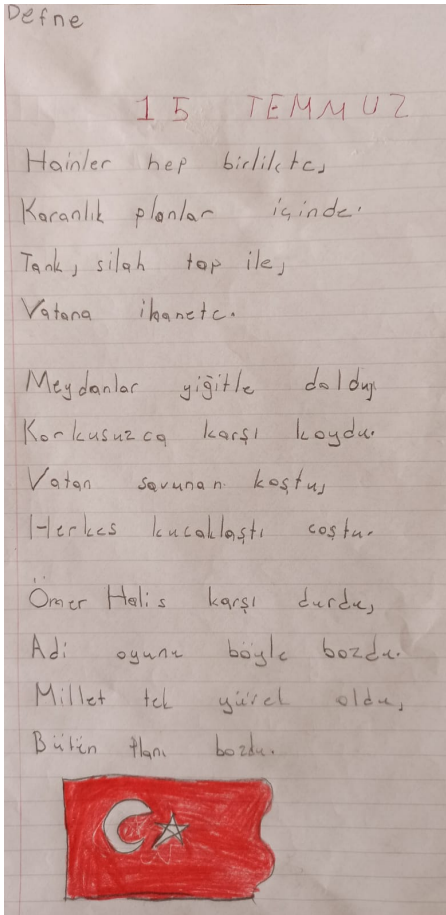 Defne
15 TEMMUZ
Hainler hep birlikte,
Karanlık planlar içinde.
Tank, silah top ile,
Vatana ihanete.
Meydanlar yiğitle doldu,
Korkusuzca karşı koydu.
Vatan savunan koştu,
Herkes kucaklaştı coştu.
Ömer Halis karşı durdu,
Adi oyunu böyle bozdu.
Millet tek yürek oldu,
Bütün planı bozdu.